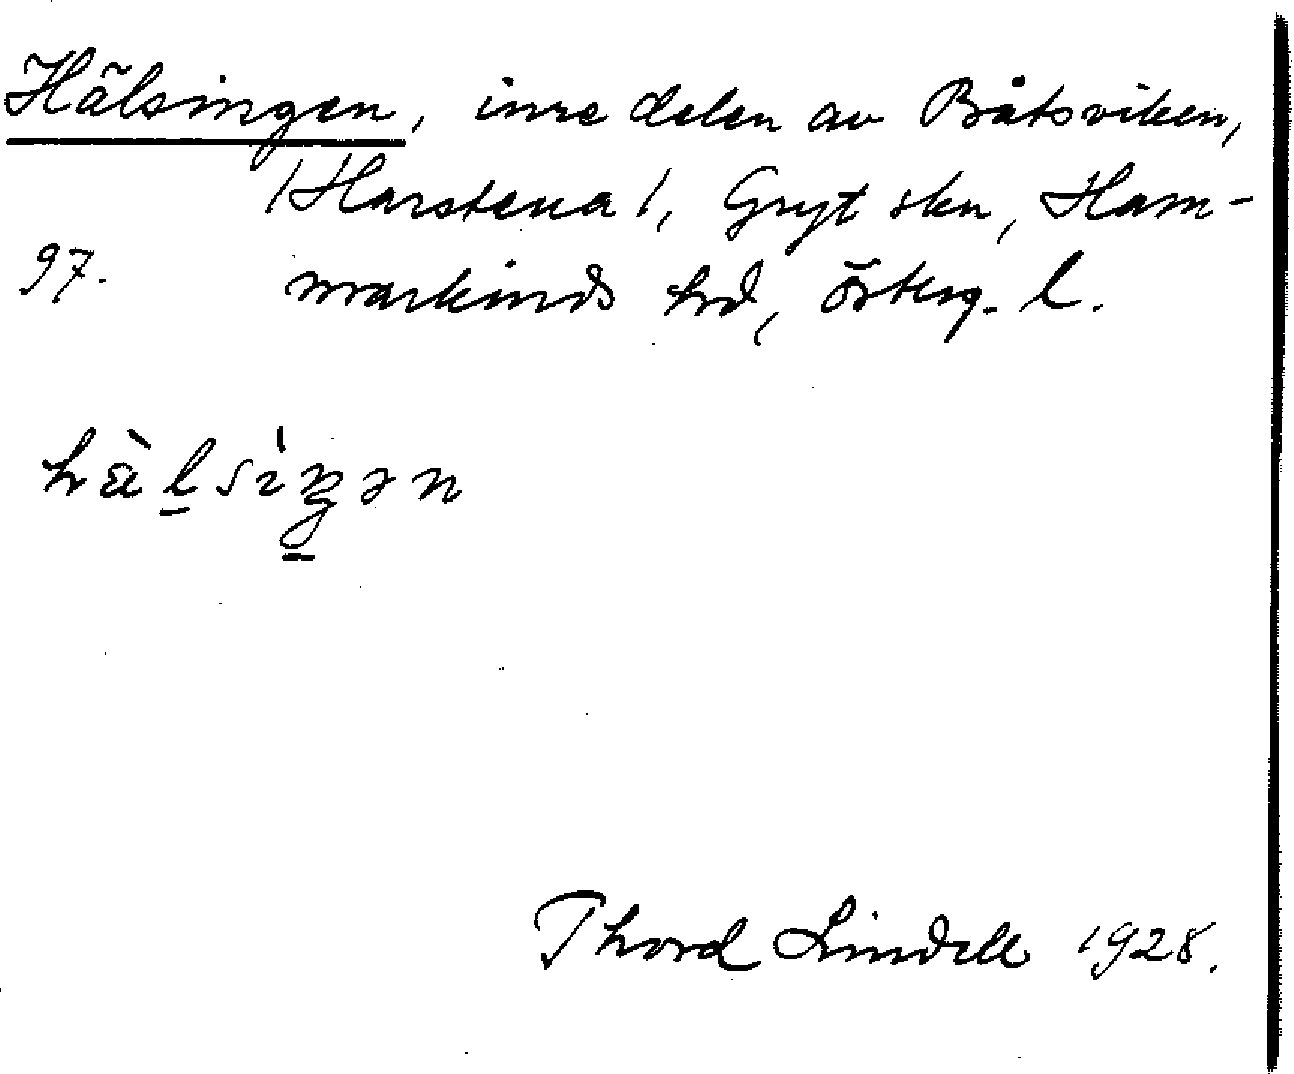 Hälsingen, inre delen av Båtsviken,
/Harstena/, Gryt skn, Ham-
97. markinds hd, österg. l.
hä̀lsìŋən
Thord Lindell 1928.